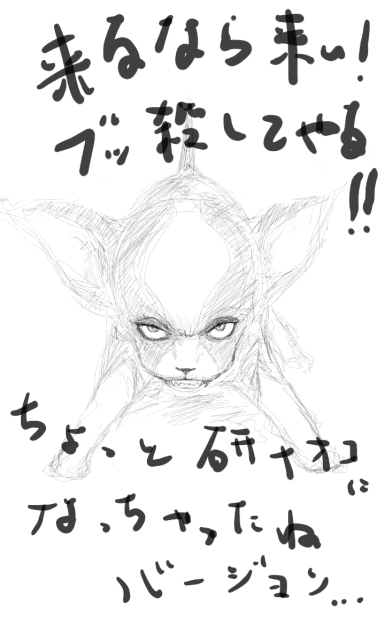 来るなら来い!
ブッ殺してやる
!!
ちょっと研ナオコ
に
なっちゃったね
バージョン...